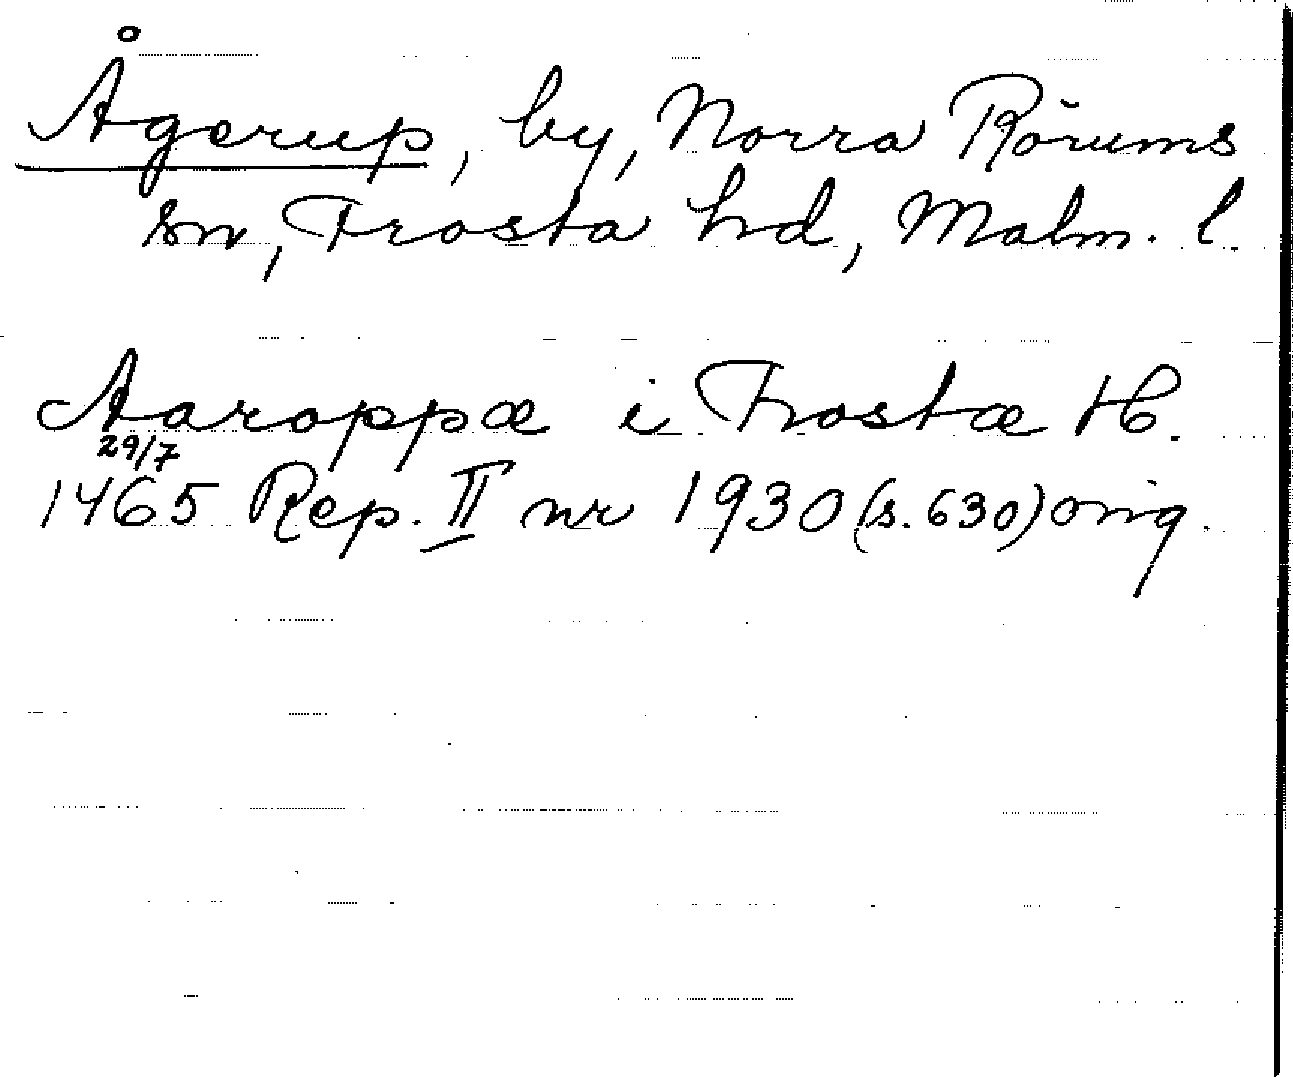 Ågerup, by, Norra Rörums
sn, Frosta hd, Malm. l.
Aaroppæ i Frostæ H.
29/7
1465 Rep. II nr 1930 (s. 630) orig.